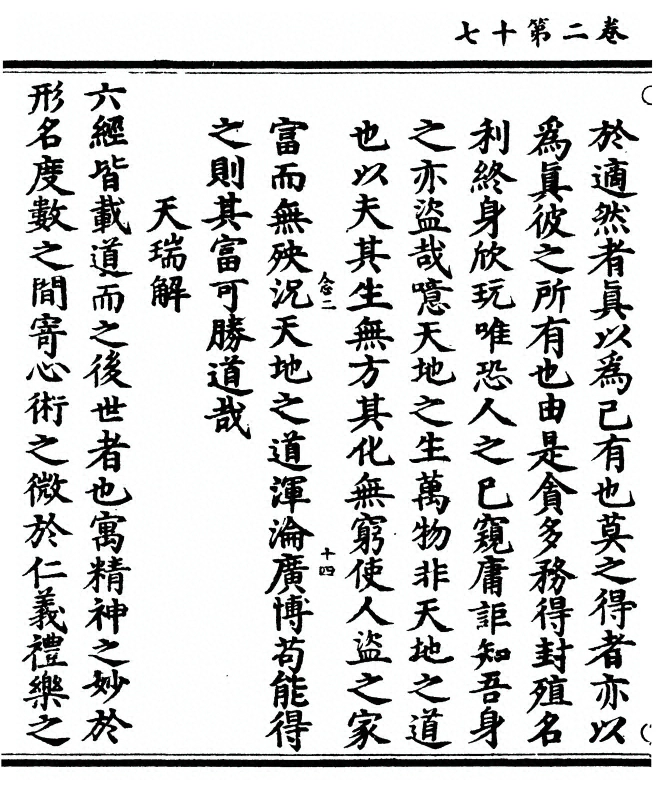 卷二第十七
於適然者真以爲己有也莫之得者亦以
爲真彼之所有也由是貪多務得封殖名
利終身欣玩唯恐人之已窺庸詎知吾身
之亦盜哉噫天地之生萬物非天地之道
也以夫其生無方其化無窮使人盜之家
富而無殃況天地之道渾淪廣博苟能得
念二
十四
之則其富可勝道哉
天瑞解
六經皆載道而之後世者也寓精神之妙於
形名度數之間寄心術之微於仁義禮樂之